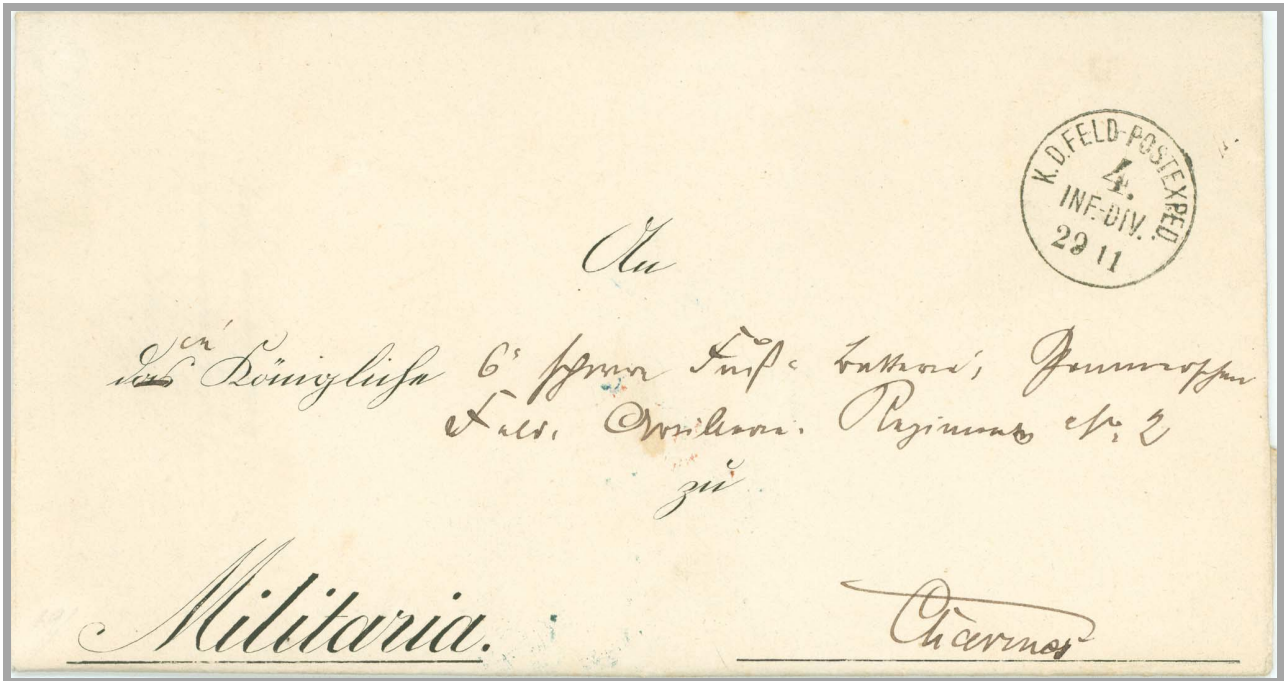 K. D. FELD-POSTEXPED.
4.
INF.-DIV.
29 11
An
das ie Königliche 6ᵉ schwere Fuß-Batterie, Pommerschen
Feld. Artillerie. Regiments No. 2
zu
Militaria.
Charmes